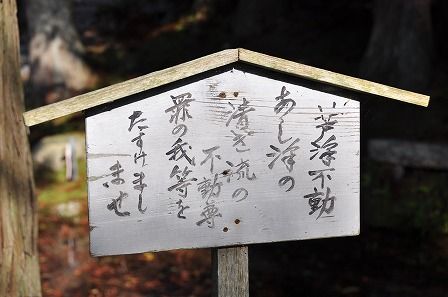 芦津不動
あし津の
清き流の
不動尊
罪の我等を
たすけまし
ませ